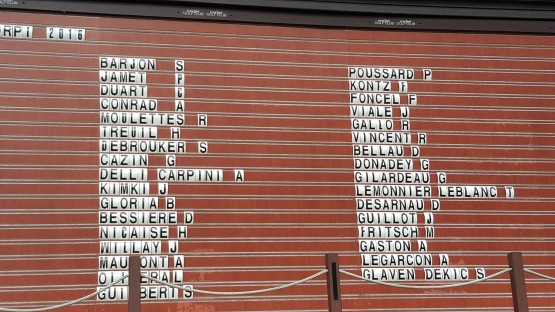 ORPI 2016
BARJON S
JAMET P
DUART C
CONRAD A
MOULETTES R
TREUIL H
DEBROUKER S
CAZIN G
DELLI CARPINI A
KIMKI J
GLORIA B
BESSIERE D
NICAISE H
WILLAY J
A
L
GUILBERT S
POUSSARD P
KONTZ F
FONCEL F
VIALE J
GALLO R
VINCENT R
BELLAU D
DONADEY G
GILARDEAU G
LEMONNIER LEBLANC T
DESARNAUD D
GUILLOT J
FRITSCH M
GASTON A
LEGARCON A
GLAVEN DEKIC S